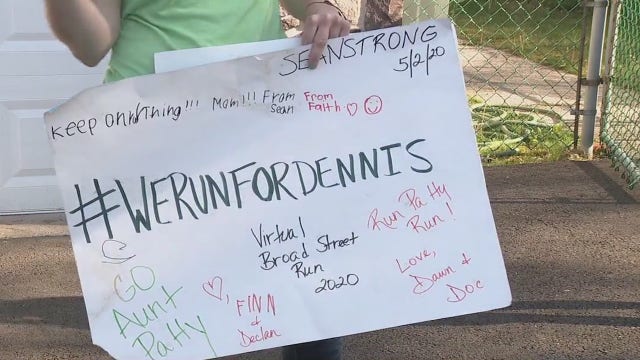 SEANSTRONG
5/2/20
Keep on !!! Mom!!! From Sean
From Faith
#WERUNFORDENNIS
Virtual
Broad Street
Run
2020
Run Patty
Run!
GO
Aunt
Patty
FINN
+
Declan
Love,
Dawn +
Doc